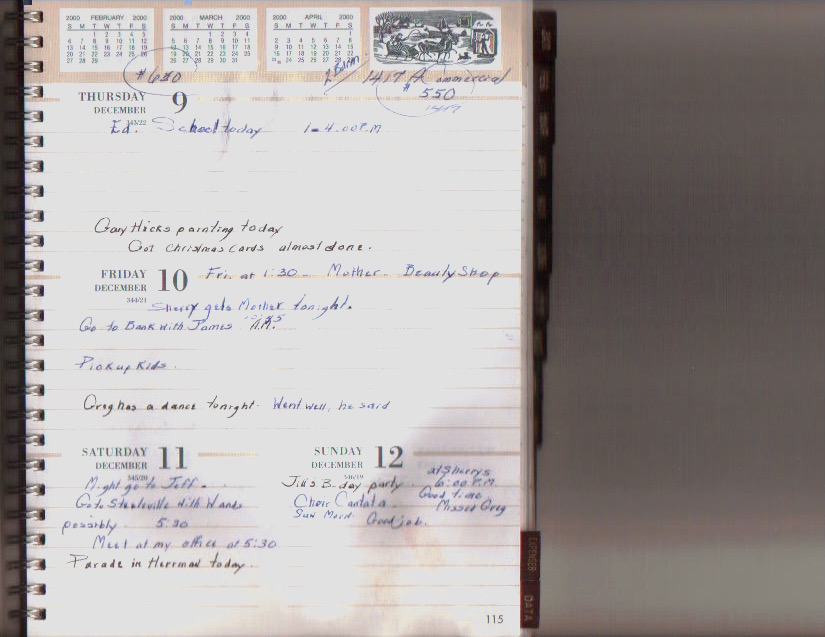 2000 FEBRUARY 2000
S M T W T F S
1 2 3 4 5
6 7 8 9 10 11 12
13 14 15 16 17 18 19
20 21 22 23 24 25 26
27 28 29
2000 MARCH 2000
S M T W T F S
1 2 3 4
5 6 7 8 9 10 11
12 13 14 15 16 17 18
19 20 21 22 23 24 25
26 27 28 29 30 31
2000 APRIL 2000
S M T W T F S
1
2 3 4 5 6 7 8
9 10 11 12 13 14 15
16 17 18 19 20 21 22
23 24 25 26 27 28 29
30
#680
2 Bdrm
1417 A Commercial
#550
1417
THURSDAY 9
DECEMBER
343/22
Ed. School today 1-4:00 P.M
Gary Hicks painting today
Got Christmas Cards almost done.
FRIDAY 10
DECEMBER
344/21
Fri. at 1:30 - Mother - Beauty Shop
Sherry gets Mother tonight.
10:45
Go to Bank with James A.M.
Pick up Kids.
Greg has a dance tonight - Went well, he said
SATURDAY 11
DECEMBER
345/20
Might go to Jeff.
Go to Steeleville with Wanda
possibly 5:30
Meet at my office at 5:30
Parade in Herrman today.
SUNDAY 12
DECEMBER
346/19
Jill's B. day party
at Sherrys
6:00 P.M.
Good time
Missed Greg
Choir Cantata
Sun Morn. Good job.
EXPENSES
DATA
115